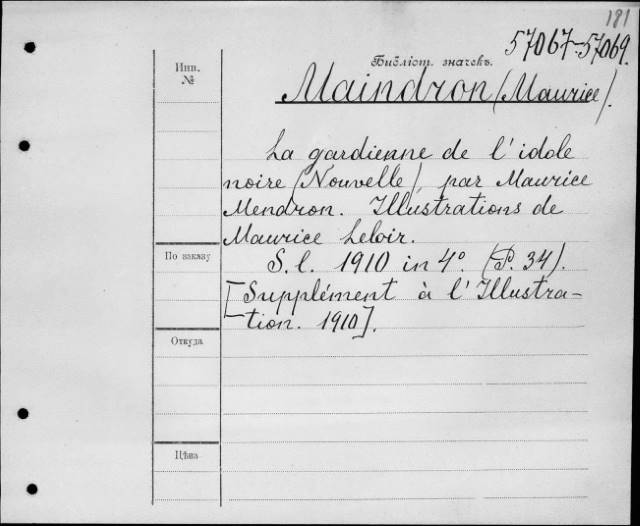 181
57067-57069.
Библіот. значекъ.
Инв.
№
Maindron (Maurice).
La gardienne de l'idole
noire (Nouvelle), par Maurice
Mendron. Illustrations de
Maurice Leloir.
По заказу
S. l. 1910 in 4°. (P. 34).
[Supplément à l'Illustra-
tion. 1910].
Откуда
Цѣна